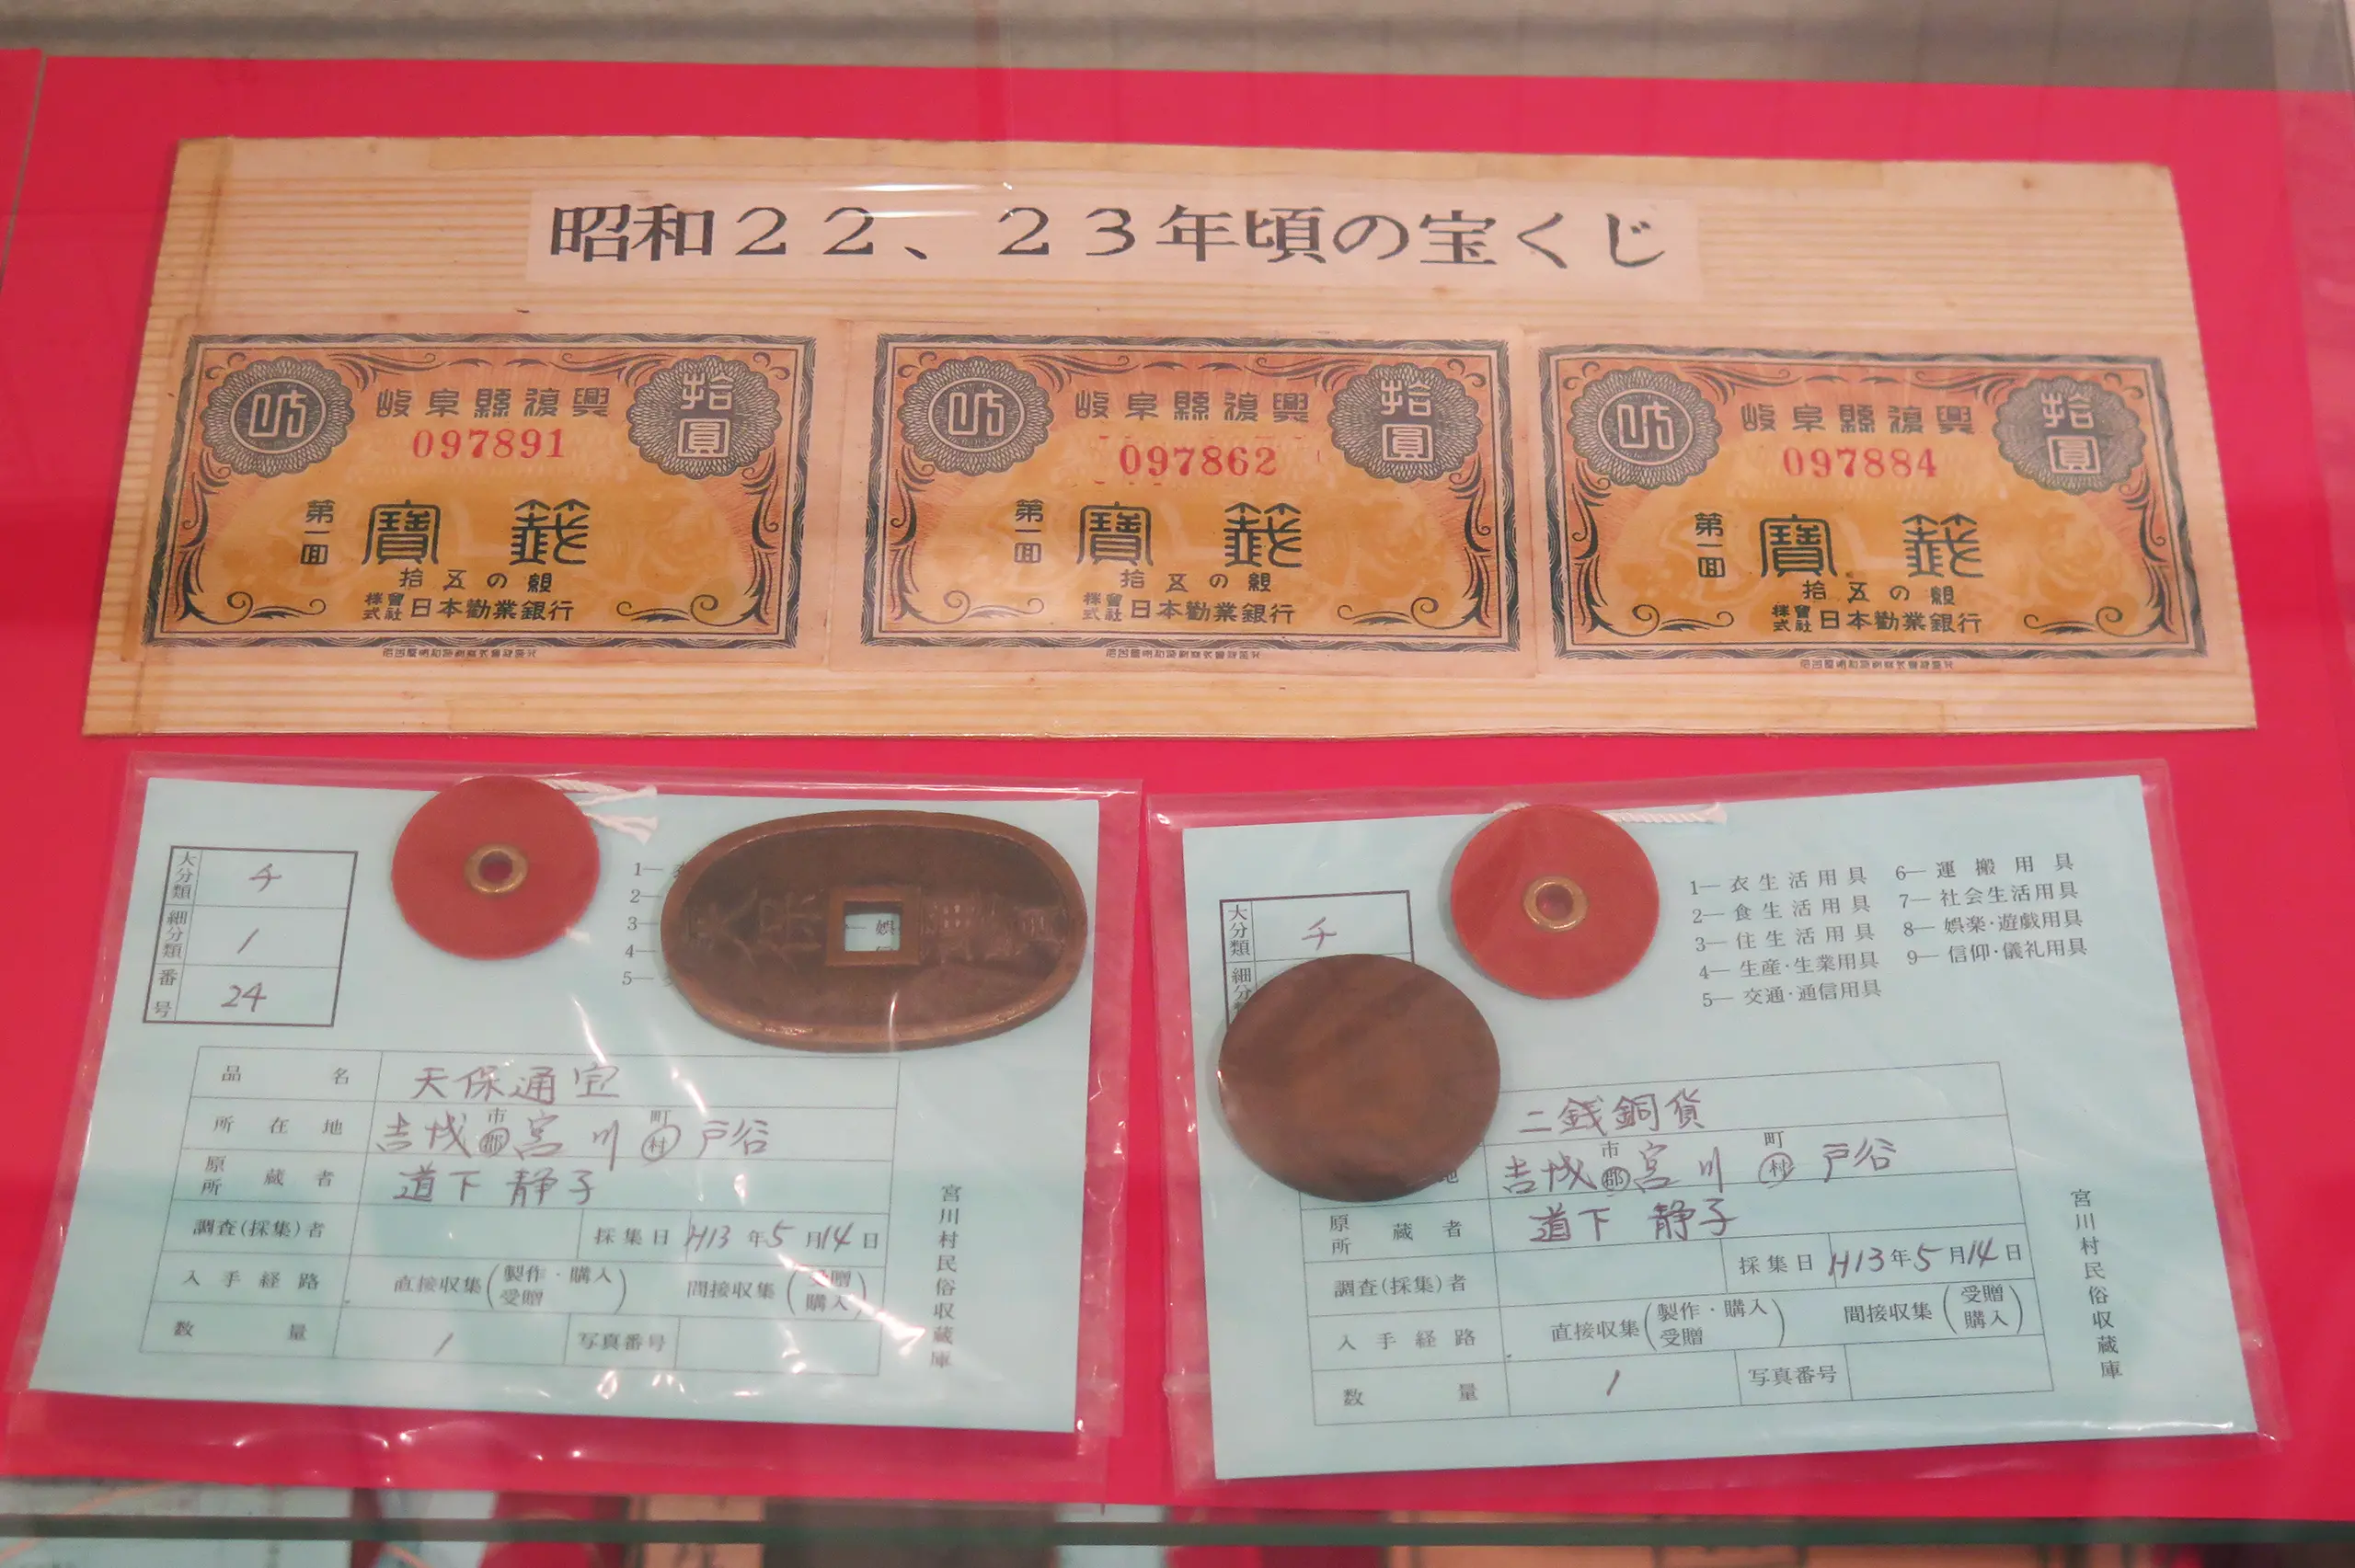 昭和22、23年頃の宝くじ
岐阜縣復興
拾圓
097891
第一回
寶籤
拾五の組
株式會社日本勸業銀行
岐阜縣復興
拾圓
097862
第一回
寶籤
拾五の組
株式會社日本勸業銀行
岐阜縣復興
拾圓
097884
第一回
寶籤
拾五の組
株式會社日本勸業銀行
大分類 チ
細分類 1
番号 24
1—
2—
3—
4—
5—
娯
天保通寶
品名 天保通宝
所在地 吉城 市郡 宮川 町村 戸谷
原所蔵者 道下 静子
調査(採集)者 採集日 H13年5月14日
入手経路 直接収集(製作・購入 受贈) 間接収集(受贈 購入)
数量 1 写真番号
宮川村民俗収蔵庫
大分類 チ
細分
1— 衣生活用具
2— 食生活用具
3— 住生活用具
4— 生産・生業用具
5— 交通・通信用具
6— 運搬用具
7— 社会生活用具
8— 娯楽・遊戯用具
9— 信仰・儀礼用具
二銭銅貨
地 吉城 市郡 宮川 町村 戸谷
原所蔵者 道下 静子
調査(採集)者 採集日 H13年5月14日
入手経路 直接収集(製作・購入 受贈) 間接収集(受贈 購入)
数量 1 写真番号
宮川村民俗収蔵庫